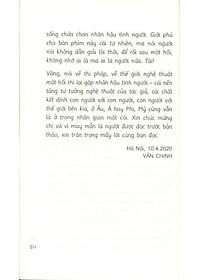 sống chứa chan nhân hậu tình người. Giới phủ
cho bàn phím này cái tự nhiên, ma nói người
nói không dẫn giải lôi thôi, để rồi sau một hồi,
không nhớ ai là ma ai là người nữa. Tài!
Vâng, nói về thi pháp, về thế giới nghệ thuật một
một hồi thì lại gặp nhân hậu tình người – cái nền
tảng tư tưởng nghệ thuật của tác giả, cái chất
kết dính con người với con người, con người với
thế giới bên kia, ở Âu, Á hay Phi, Mỹ cũng vẫn
là ở trong nhân gian một cõi. Xin chúc mừng
chị và vì may mắn là người được đọc trước bản
thảo, xin trân trọng mấy lời cùng bạn đọc.
Hà Nội, 10.4.2020
VĂN CHINH